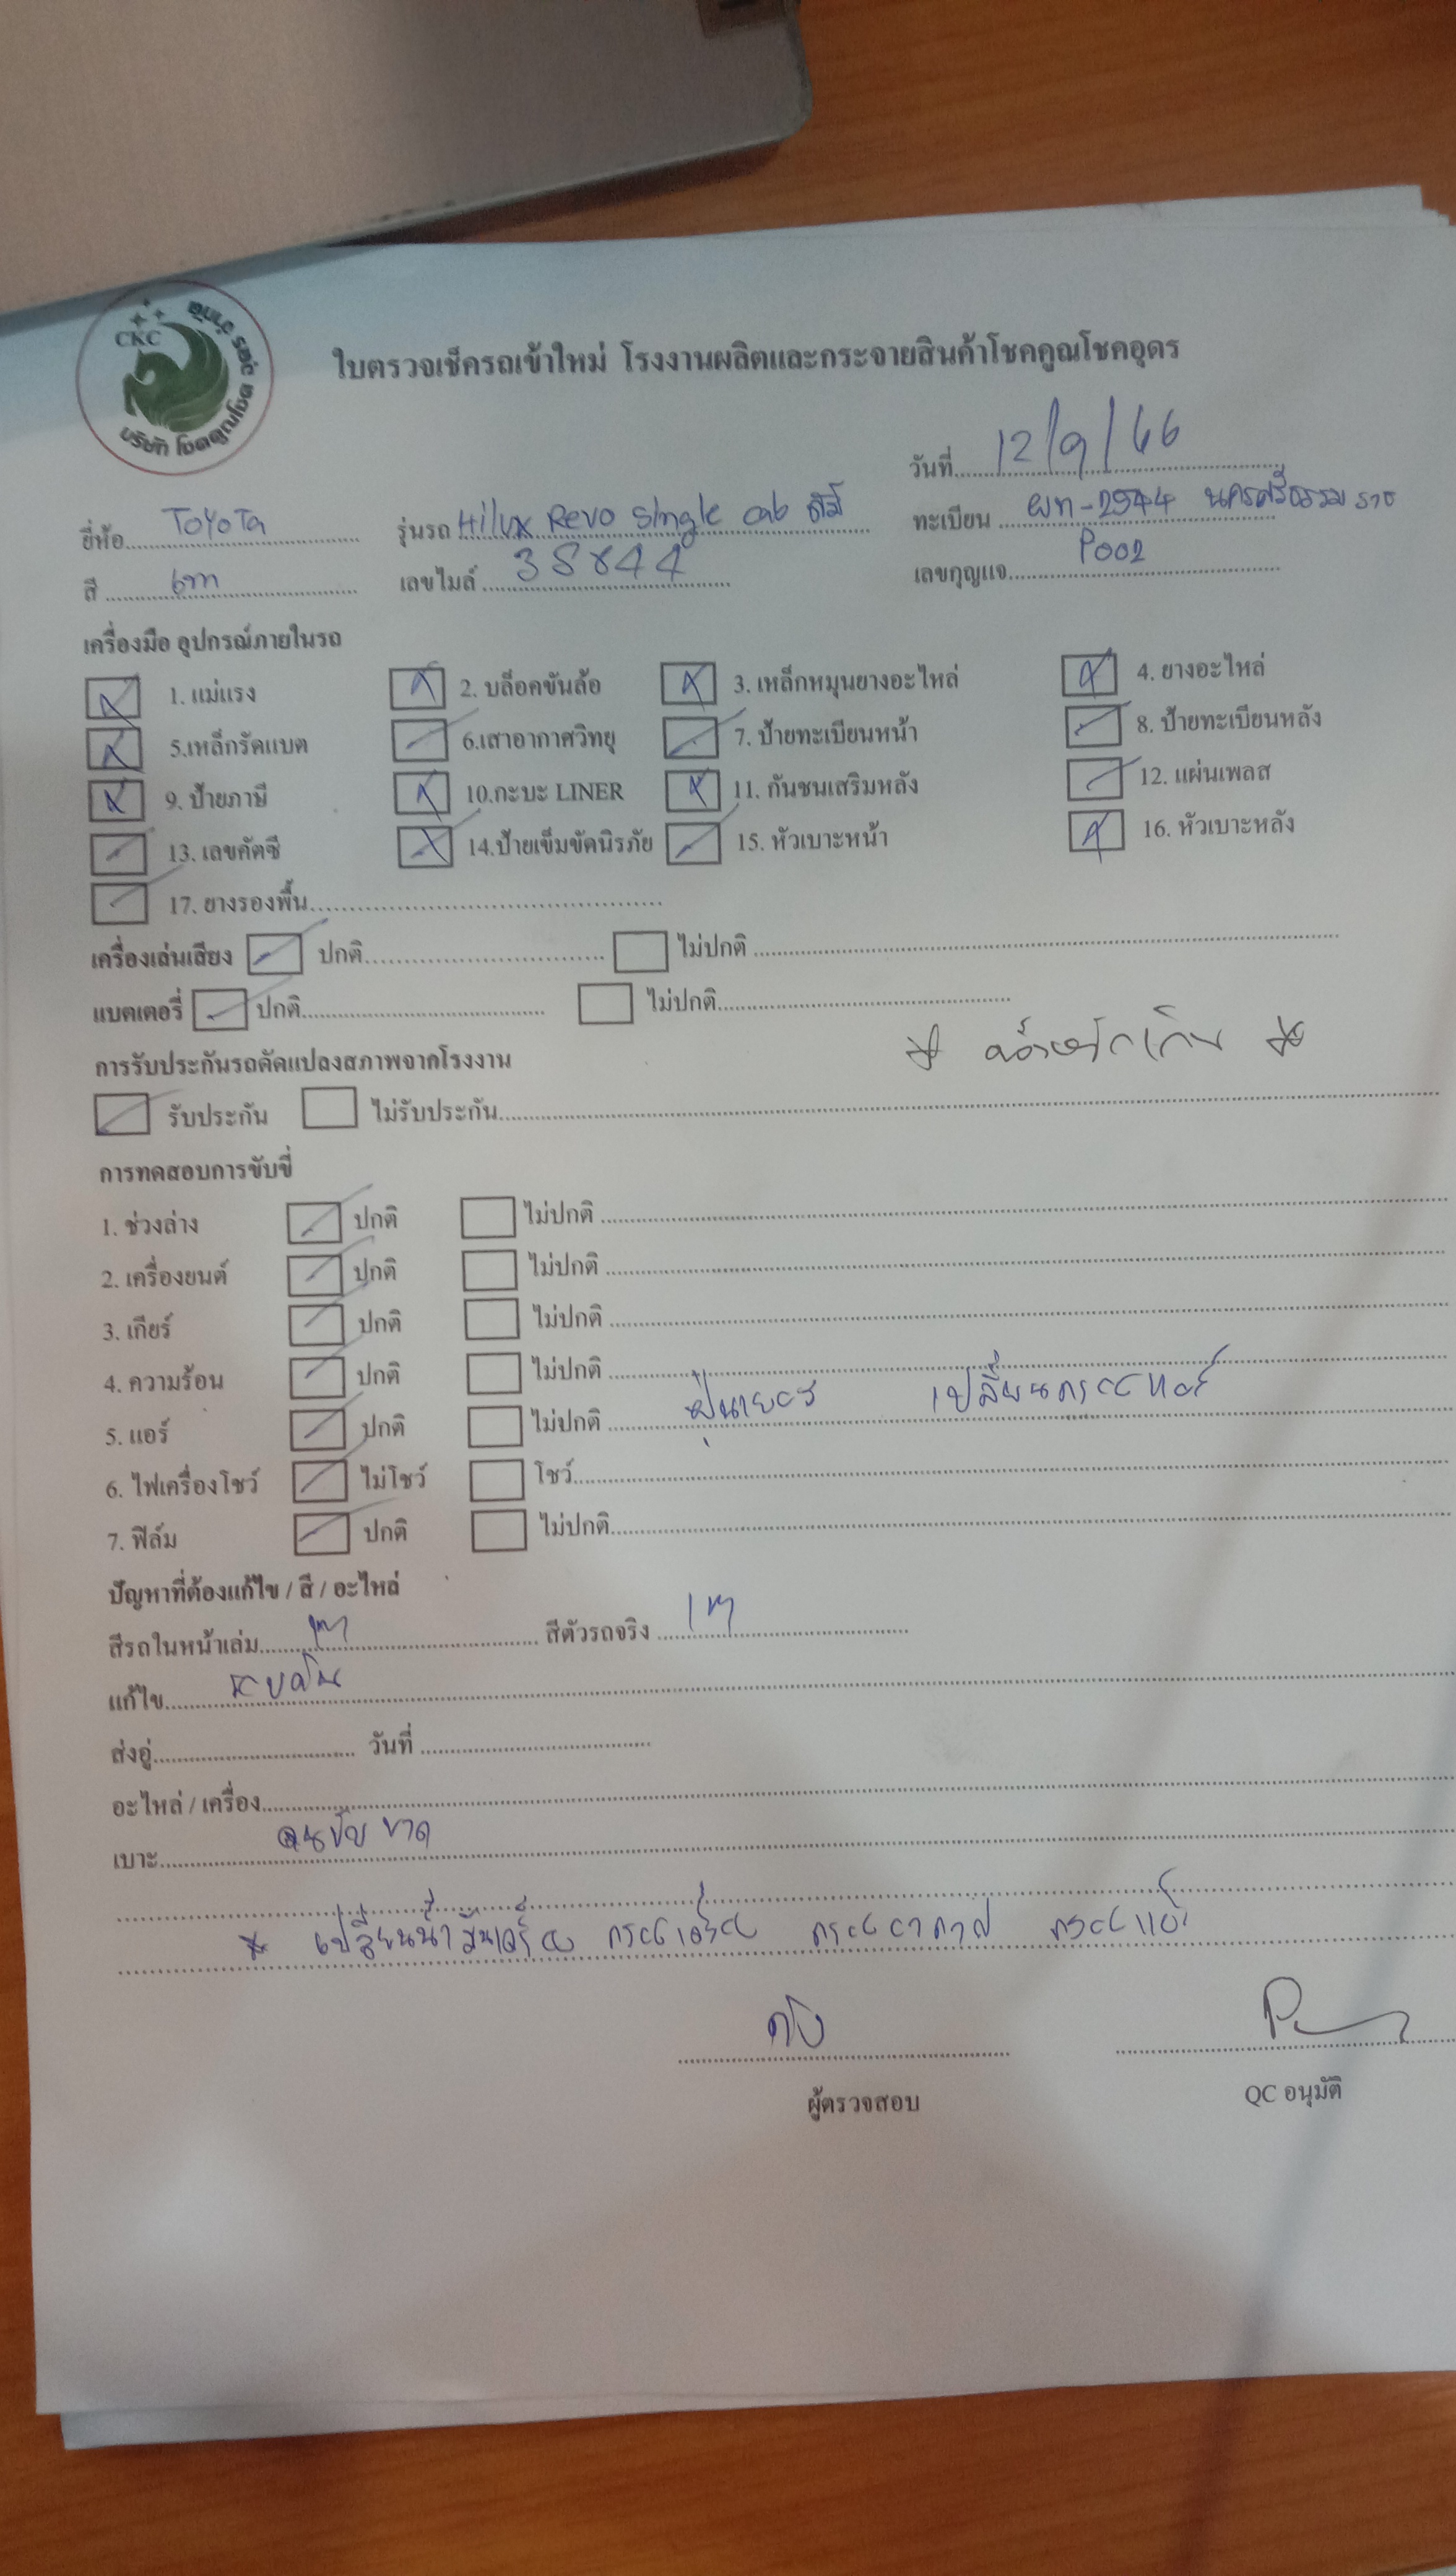 CKC
บริษัท โชคคูณโชค กรุ๊ป จำกัด
ใบตรวจเช็ครถเข้าใหม่ โรงงานผลิตและกระจายสินค้าโชคคูณโชคอุดร
วันที่ 12/9/66
ยี่ห้อ TOYOTA รุ่นรถ Hilux Revo Single cab ทะเบียน ผท-2544 นครศรีธรรมราช
สี เทา เลขไมล์ 38844 เลขกุญแจ P002
เครื่องมือ อุปกรณ์ภายในรถ
1. แม่แรง 2. บล็อคขันล้อ 3. เหล็กหมุนยางอะไหล่ 4. ยางอะไหล่
5.เหล็กรัดแบต 6.เสาอากาศวิทยุ 7. ป้ายทะเบียนหน้า 8. ป้ายทะเบียนหลัง
9. ป้ายภาษี 10.กะบะ LINER 11. กันชนเสริมหลัง 12. แผ่นเพลส
13. เลขคัตซี 14.ป้ายเข็มขัดนิรภัย 15. หัวเบาะหน้า 16. หัวเบาะหลัง
17. ยางรองพื้น
เครื่องเล่นเสียง ปกติ ไม่ปกติ
แบตเตอรี่ ปกติ ไม่ปกติ
การรับประกันรถดัดแปลงสภาพจากโรงงาน
รับประกัน ไม่รับประกัน
การทดสอบการขับขี่
1. ช่วงล่าง ปกติ ไม่ปกติ
2. เครื่องยนต์ ปกติ ไม่ปกติ
3. เกียร์ ปกติ ไม่ปกติ
4. ความร้อน ปกติ ไม่ปกติ
5. แอร์ ปกติ ไม่ปกติ เปลี่ยนกรองแอร์
6. ไฟเครื่องโชว์ ไม่โชว์ โชว์
7. ฟิล์ม ปกติ ไม่ปกติ
ปัญหาที่ต้องแก้ไข / สี / อะไหล่
สีรถในหน้าเล่ม เทา สีตัวรถจริง เทา
แก้ไข รอบคัน
ส่งอู่ วันที่
อะไหล่ / เครื่อง
เบาะ คนขับ ขาด
* เปลี่ยนน้ำมันเครื่อง กรองเครื่อง กรองอากาศ กรองแอร์
ผู้ตรวจสอบ QC อนุมัติ